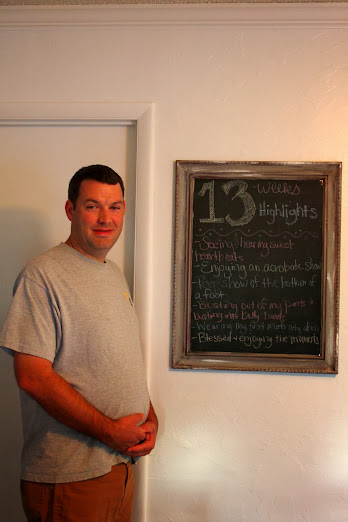 13 Weeks
Highlights
- Seeing + hearing sweet
heart beats
- Enjoying an acrobatic show
- Peep show of the bottom of
a foot
- Busting out of my pants +
busting into belly bands
- Wearing my first maternity dress
- Blessed + enjoying the moments